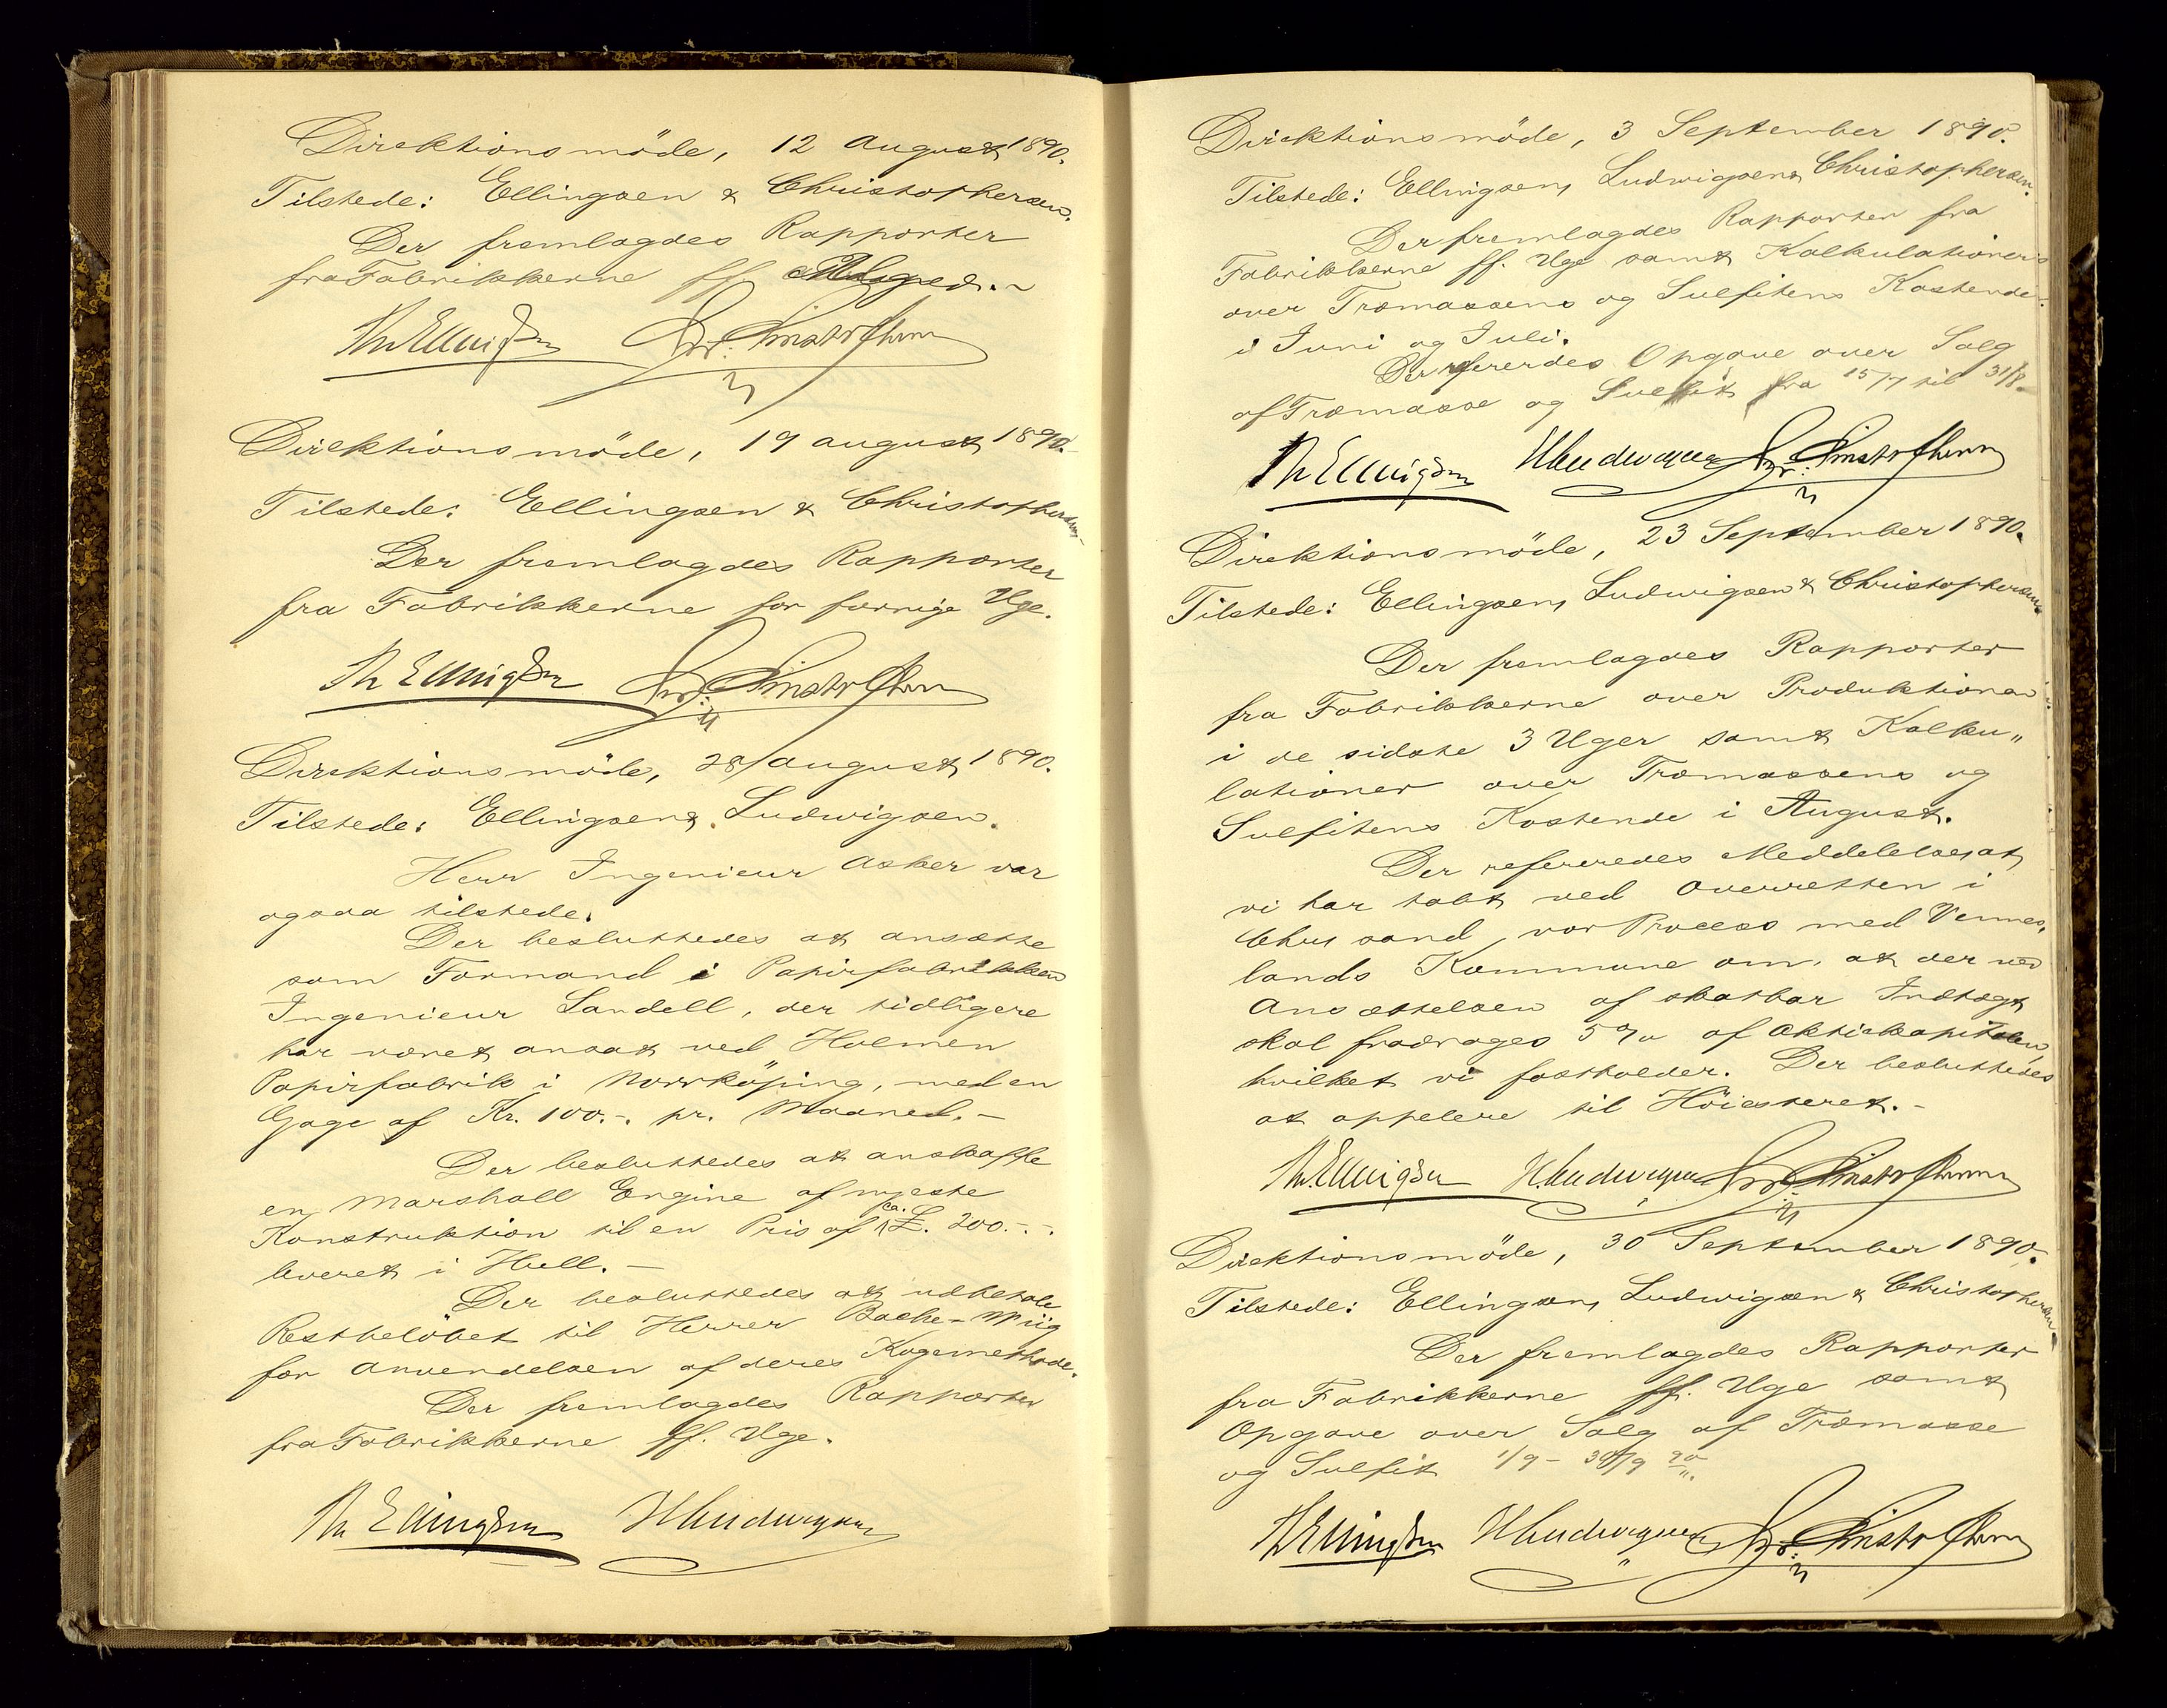 Direktionsmöde, 12 August 1890.
Tilstede: Ellingsen & Christophersen.
Der fremlagdes Rapporter
fra Fabrikkerne ff.
Th Ellingsen Chr. Christophersen
Direktionsmöde, 19 august 1890.
Tilstede: Ellingsen & Christophersen
Der fremlagdes Rapporter
fra Fabrikkerne for forrige Uge.
Th Ellingsen Chr. Christophersen
Direktionsmöde, 28 august 1890.
Tilstede: Ellingsen & Ludwigsen.
Herr Ingenieur Asker var
ogsaa tilstede.
Der besluttedes at ansætte
som Formand i Papirfabrikken
Ingenieur Sandell, der tidligere
har været ansat ved Holmen
Papirfabrik i Norrköping, med en
Gage af Kr. 100.-. pr. Maaned.-
Der besluttedes at anskaffe
en Marshall Engine af nyeste
Konstruktion til en Pris af ca. £. 200.-.-.
leveret i Hull.-
Der besluttedes at udbetale
Restbelöbet til Herrer Bache-Wiig
for Anvendelsen af deres Kogemethode.
Der fremlagdes Rapporter
fra Fabrikkerne ff. Uge.
Th Ellingsen H Ludwigsen
Direktionsmöde, 3 September 1890.
Tilstede: Ellingsen, Ludwigsen & Christophersen.
Der fremlagdes Rapporter fra
Fabrikkerne ff. Uge samt Kalkulationer
over Træmassens og Sulfitens Kostende
i Juni og Juli.
Der refererdes Opgave over Salg
af Træmasse og Sulfit fra 15/7 til 31/8.
Th Ellingsen H Ludwigsen Chr. Christophersen
Direktionsmöde, 23 September 1890.
Tilstede: Ellingsen, Ludwigsen & Christophersen
Der fremlagdes Rapporter
fra Fabrikkerne over Produktionen
i de sidste 3 Uger samt Kalku„
lationer over Træmassens og
Sulfitens Kostende i August.
Der refereredes Meddelelse, at
vi har tabt ved Overretten i
Chr sand vor Process med Vennes„
lands Kommune om, at der ved
Ansættelsen af skatbar Indtægt
skal fradrages 5% af Aktiekapitalen,
hvilket vi fastholder. Der besluttedes
at appelere til Höiesteret.-
Th. Ellingsen H. Ludwigsen Chr. Christophersen
Direktionsmöde, 30 September 1890.
Tilstede: Ellingsen, Ludwigsen & Christophersen
Der fremlagdes Rapporter
fra Fabrikkerne ff. Uge samt
Opgave over Salg af Træmasse
og Sulfit 1/9 - 30/9 90.
Th Ellingsen H Ludwigsen Chr. Christophersen